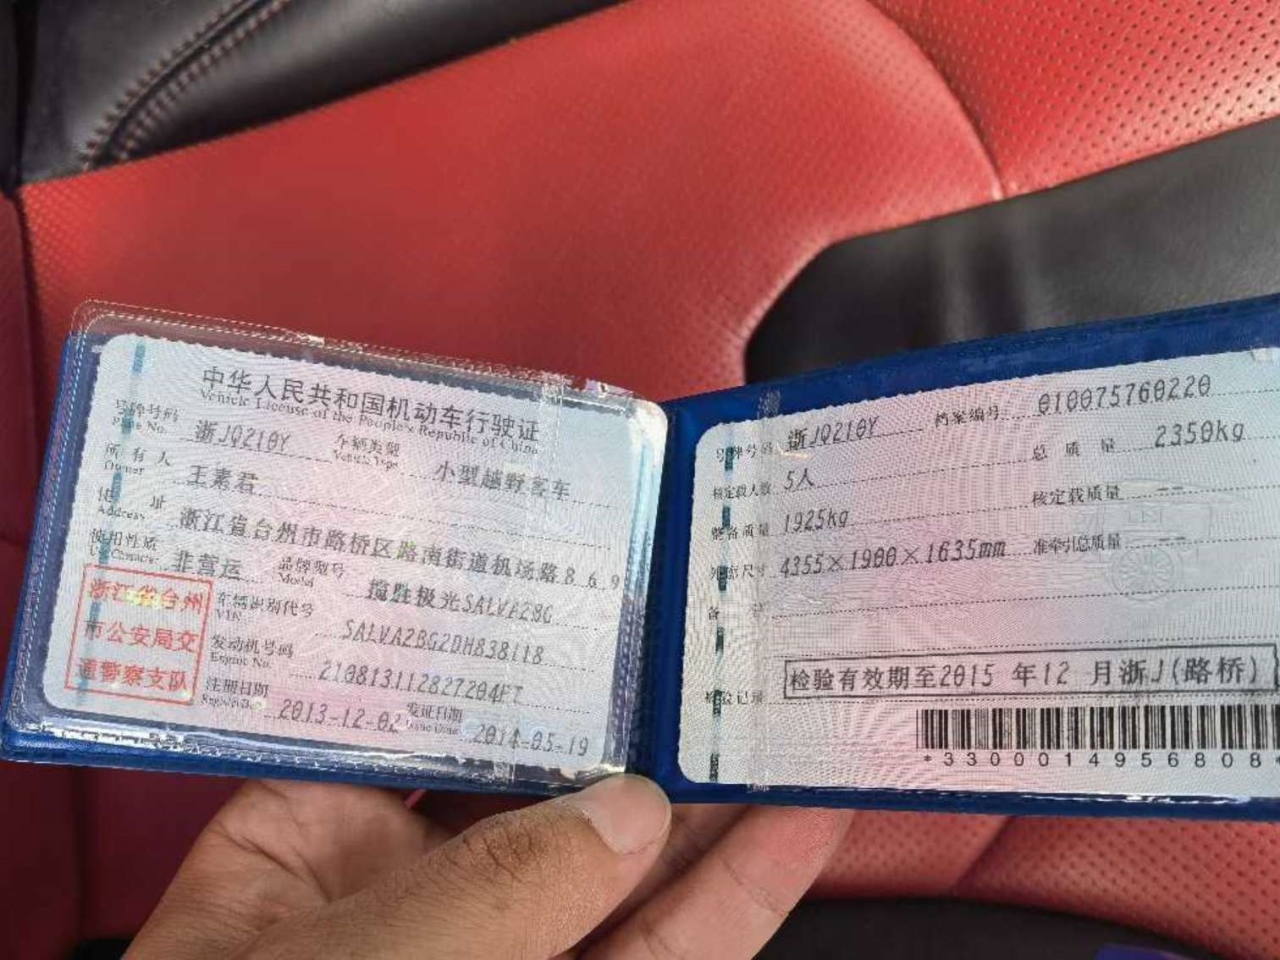 中华人民共和国机动车行驶证
Vehicle License of the People's Republic of China
号牌号码 浙JQ210Y 车辆类型 小型越野客车
Plate No. Vehicle Type
所有人 王素君
Owner
住址 浙江省台州市路桥区路南街道机场路869
Address
使用性质 非营运 品牌型号 揽胜极光SALVA2BG
Use Character Model
浙江省台州
市公安局交
通警察支队
车辆识别代号 SALVA2BG2DH838118
VIN
发动机号码 210813112827204PT
Engine No.
注册日期 2013-12-02 发证日期 2014-05-19
Register Date Issue Date
号牌号码 浙JQ210Y 档案编号 010075760220
核定载人数 5人 总质量 2350kg
整备质量 1925kg 核定载质量 --
外廓尺寸 4355×1900×1635mm 准牵引总质量 --
备
检验记录 检验有效期至2015年12月浙J(路桥)
*3300014956808*